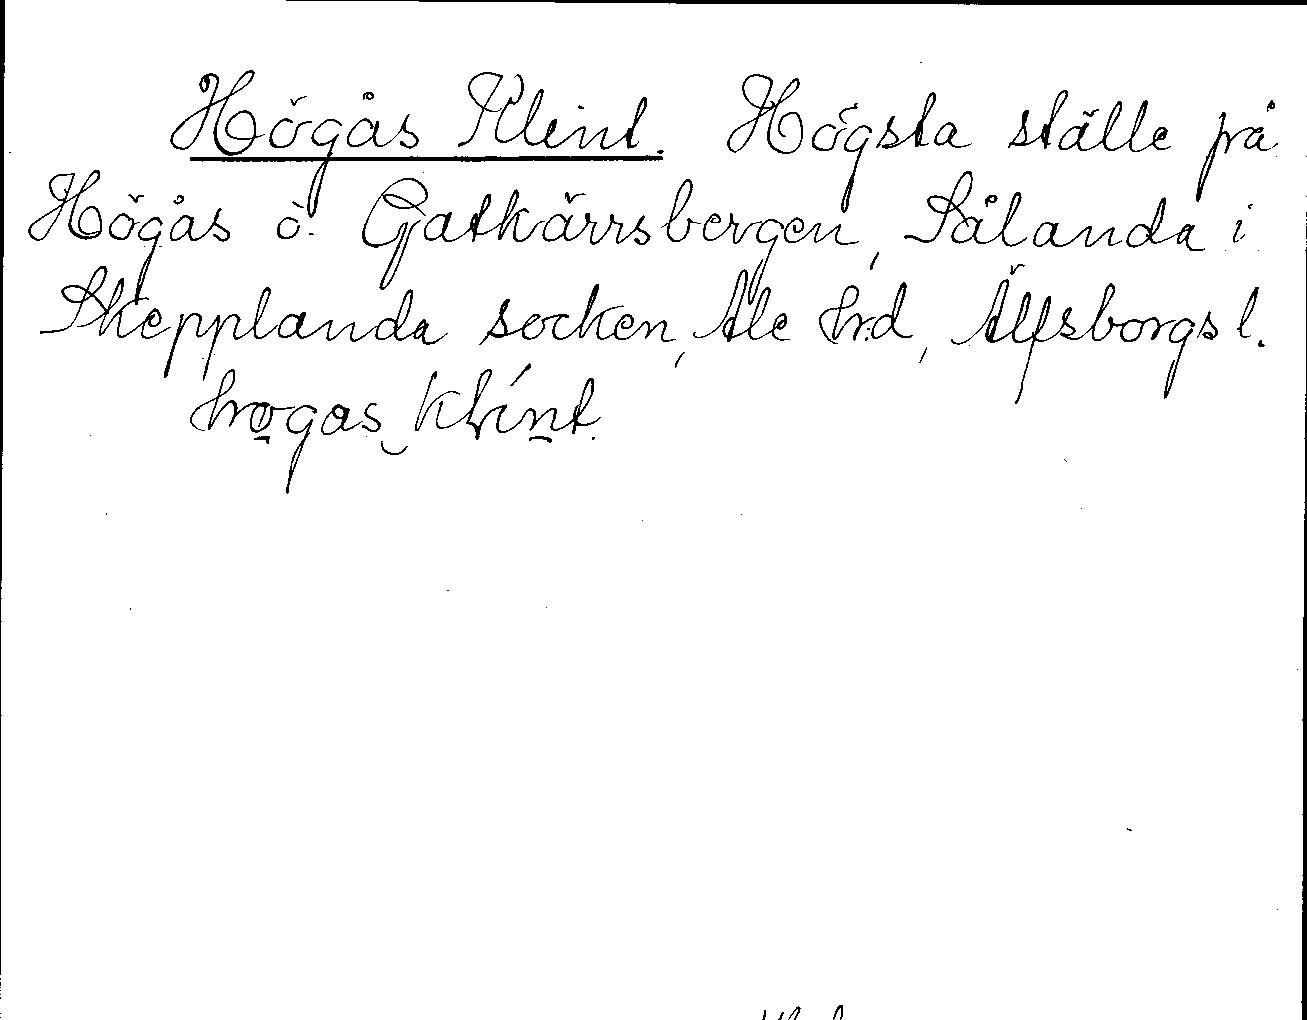 Högås Klint. Högsta ställe på
Högås ö. Gatkärrsbergen, Sålanda i
Skepplanda socken, Ale hrd, Älfsborgs l.